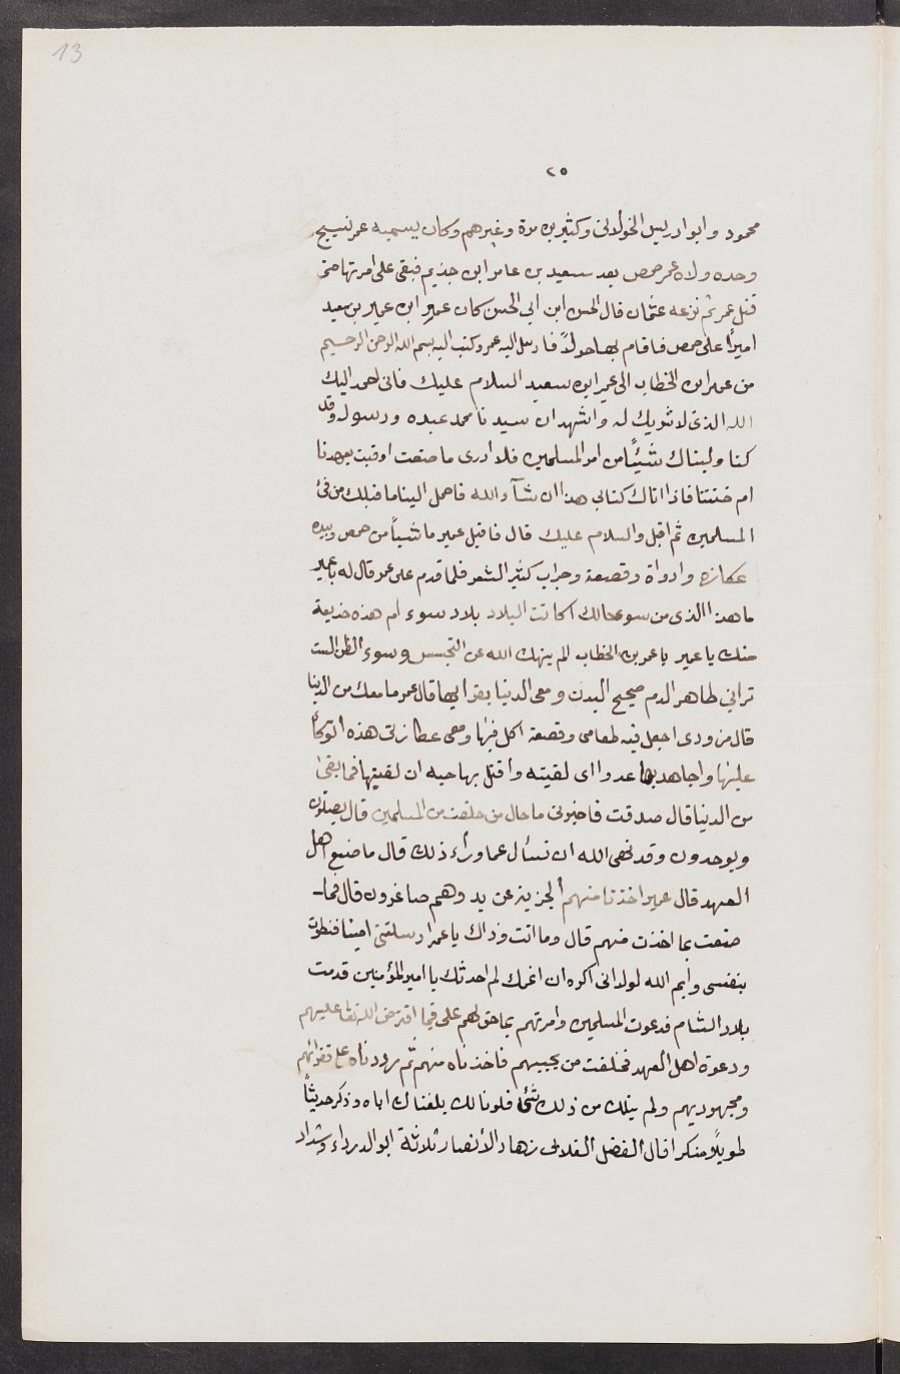 13
٢٥
محمود وابوادريس الخولانى وكثيربن مرة وغيرهم وكان يسميه عمر نسيج
وحده ولاه عمر حمص بعد سعيد بن عامر ابن جذيم فبقى على امرتها حتى
قتل عمر ثم نزعه عثمان قال الحسن ابن ابي الحسن كان عمير ابن عمير بن سعيد
اميرًا على حمص فاقام بها حولاً فارسل اليه عمر وكتب اليه بسم الله الرحمن الرحيم
من عمر ابن الخطاب الى عمير ابن سعيد السلام عليك فانى احمد اليك
الله الذى لا شريك له واشهد ان سيدنا محمد عبده ورسوله وقد
كنا وليناك شيئًا من امر المسلمين فلا ادرى ما صنعت اوفيت بعهدنا
ام خنتنا فاذا اتاك كتابى هذا ان شآء الله فاحمل الينا ما قبلك من فئ
المسلمين ثم اقبل والسلام عليك قال فاقبل عمير ماشيًا من حمص وبيده
عكازه وادواة وقصعة وجراب كثير الشعر فلما قدم على عمر قال له يا عمير
ما هذا الذى من سوء حالك اكانت البلاد بلاد سوء ام هذه خديعة
منك يا عمير يا عمر بن الخطاب الم ينهك الله عن التجسس وسوء الظن الست
ترانى طاهر الدم صحيح البدن ومعى الدنيا بقرابها قال عمر ما معك من الدنيا
قال مزودى اجعل فيه طعامى وقصعة اكل فيها ومعى عكازتى هذه اتوكأ
عليها واجاهد بها عدوا اى لقيته واقتل بها حيه ان لقيتها فما بقى
من الدنيا قال صدقت فاخبرنى ما حال من خلفت من المسلمين قال يصلون
ويوحدون وقد نهى الله ان نسأل عما ورآء ذلك قال ما صنع اهل
العهد قال عمير اخذنا منهم الجزية عن يد وهم صاغرون قال فما
صنعت بما اخذت منهم قال وما انت وذاك يا عمر ارسلتنى امينا فنظرت
بنفسى وايم الله لولا انى اكره ان اغمك لم احدثك يا امير المؤمنين قدمت
بلاد الشام فدعوت المسلمين وامرتهم بما حق لهم على فيما افترض الله تعا عليهم
ودعوة اهل العهد فخلفت من يجبيهم فاخذناه منهم ثم رددناه على فقرائهم
ومجهوديهم ولم ينلك من ذلك شئ فلو نالك بلغناك اياه وذكر حديثًا
طويلًا منكرا قال المفضل الغلابى زهاد الأنصار ثلاثة ابوالدرداء وشداد